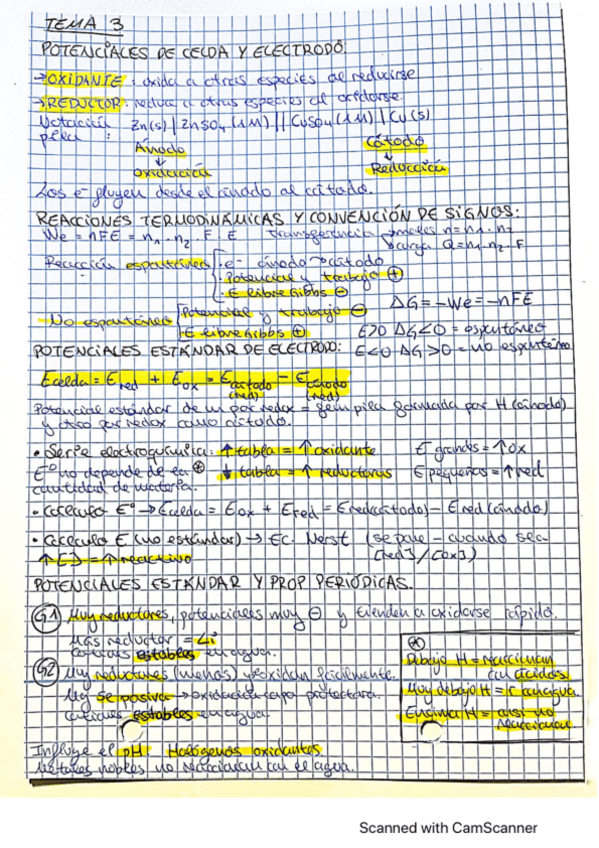 TEMA 3
POTENCIALES DE CELDA Y ELECTRODO.
→OXIDANTE: oxida a otras especies al reducirse
→REDUCTOR: reduce a otras especies al oxidarse
Notación Zn(s) | ZnSO4 (1M) || CuSO4 (1M) | Cu (s)
pila :
Ánodo Cátodo
↓ ↓
oxidación Reducción
Los e- fluyen desde el ánodo al cátodo.
REACCIONES TERMODINÁMICAS Y CONVENCIÓN DE SIGNOS:
We = nFE = n1 · n2 · F · E transferencia moles n=n1·n2
carga Q=n1·n2·F
Reacción espontánea e- ánodo → cátodo
Potencial y trabajo ⊕
E libre Gibbs ⊖
ΔG=-We=-nFE
No espontánea Potencial y trabajo ⊖
E libre Gibbs ⊕
E>0 ΔG<0 = espontáneo
POTENCIALES ESTÁNDAR DE ELECTRODO: E<0 ΔG>0 = no espontáneo
Ecelda = Ered + Eox = Ecátodo - Eánodo
(red) (red)
Potencial estándar de un par redox = fem pila formada por H (ánodo)
y otro par redox como cátodo.
• Serie electroquímica: ↑ tabla = ↑ oxidante E grandes = ↑ ox
Eº no depende de la ⊕ ↓ tabla = ↑ reductoras E pequeñas = ↑ red
cantidad de materia.
• Cálculo Eº → Ecelda = Eox + Ered = Ered(cátodo) - Ered (ánodo)
• Cálculo E (no estándar) → Ec. Nerst (se pone - cuando sea
↑[ ] = ↑ reactivo [red]/[ox])
POTENCIALES ESTÁNDAR Y PROP PERIÓDICAS.
G1 Muy reductores, potenciales muy ⊖ y tienden a oxidarse rápido.
Más reductor = Li
Cationes estables en agua.
G2 Muy reductores (menos) y oxidan fácilmente.
Mg se pasiva → oxidación capa protectora.
Cationes estables en agua
Debajo H = reaccionan
con ácidos.
Muy debajo H = r con agua.
Encima H = casi no
reaccionan
Influye el pH. Halógenos oxidantes
Metales nobles no reaccionan con el agua.
Scanned with CamScanner